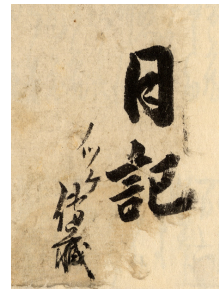 日記
イツケ傳藏